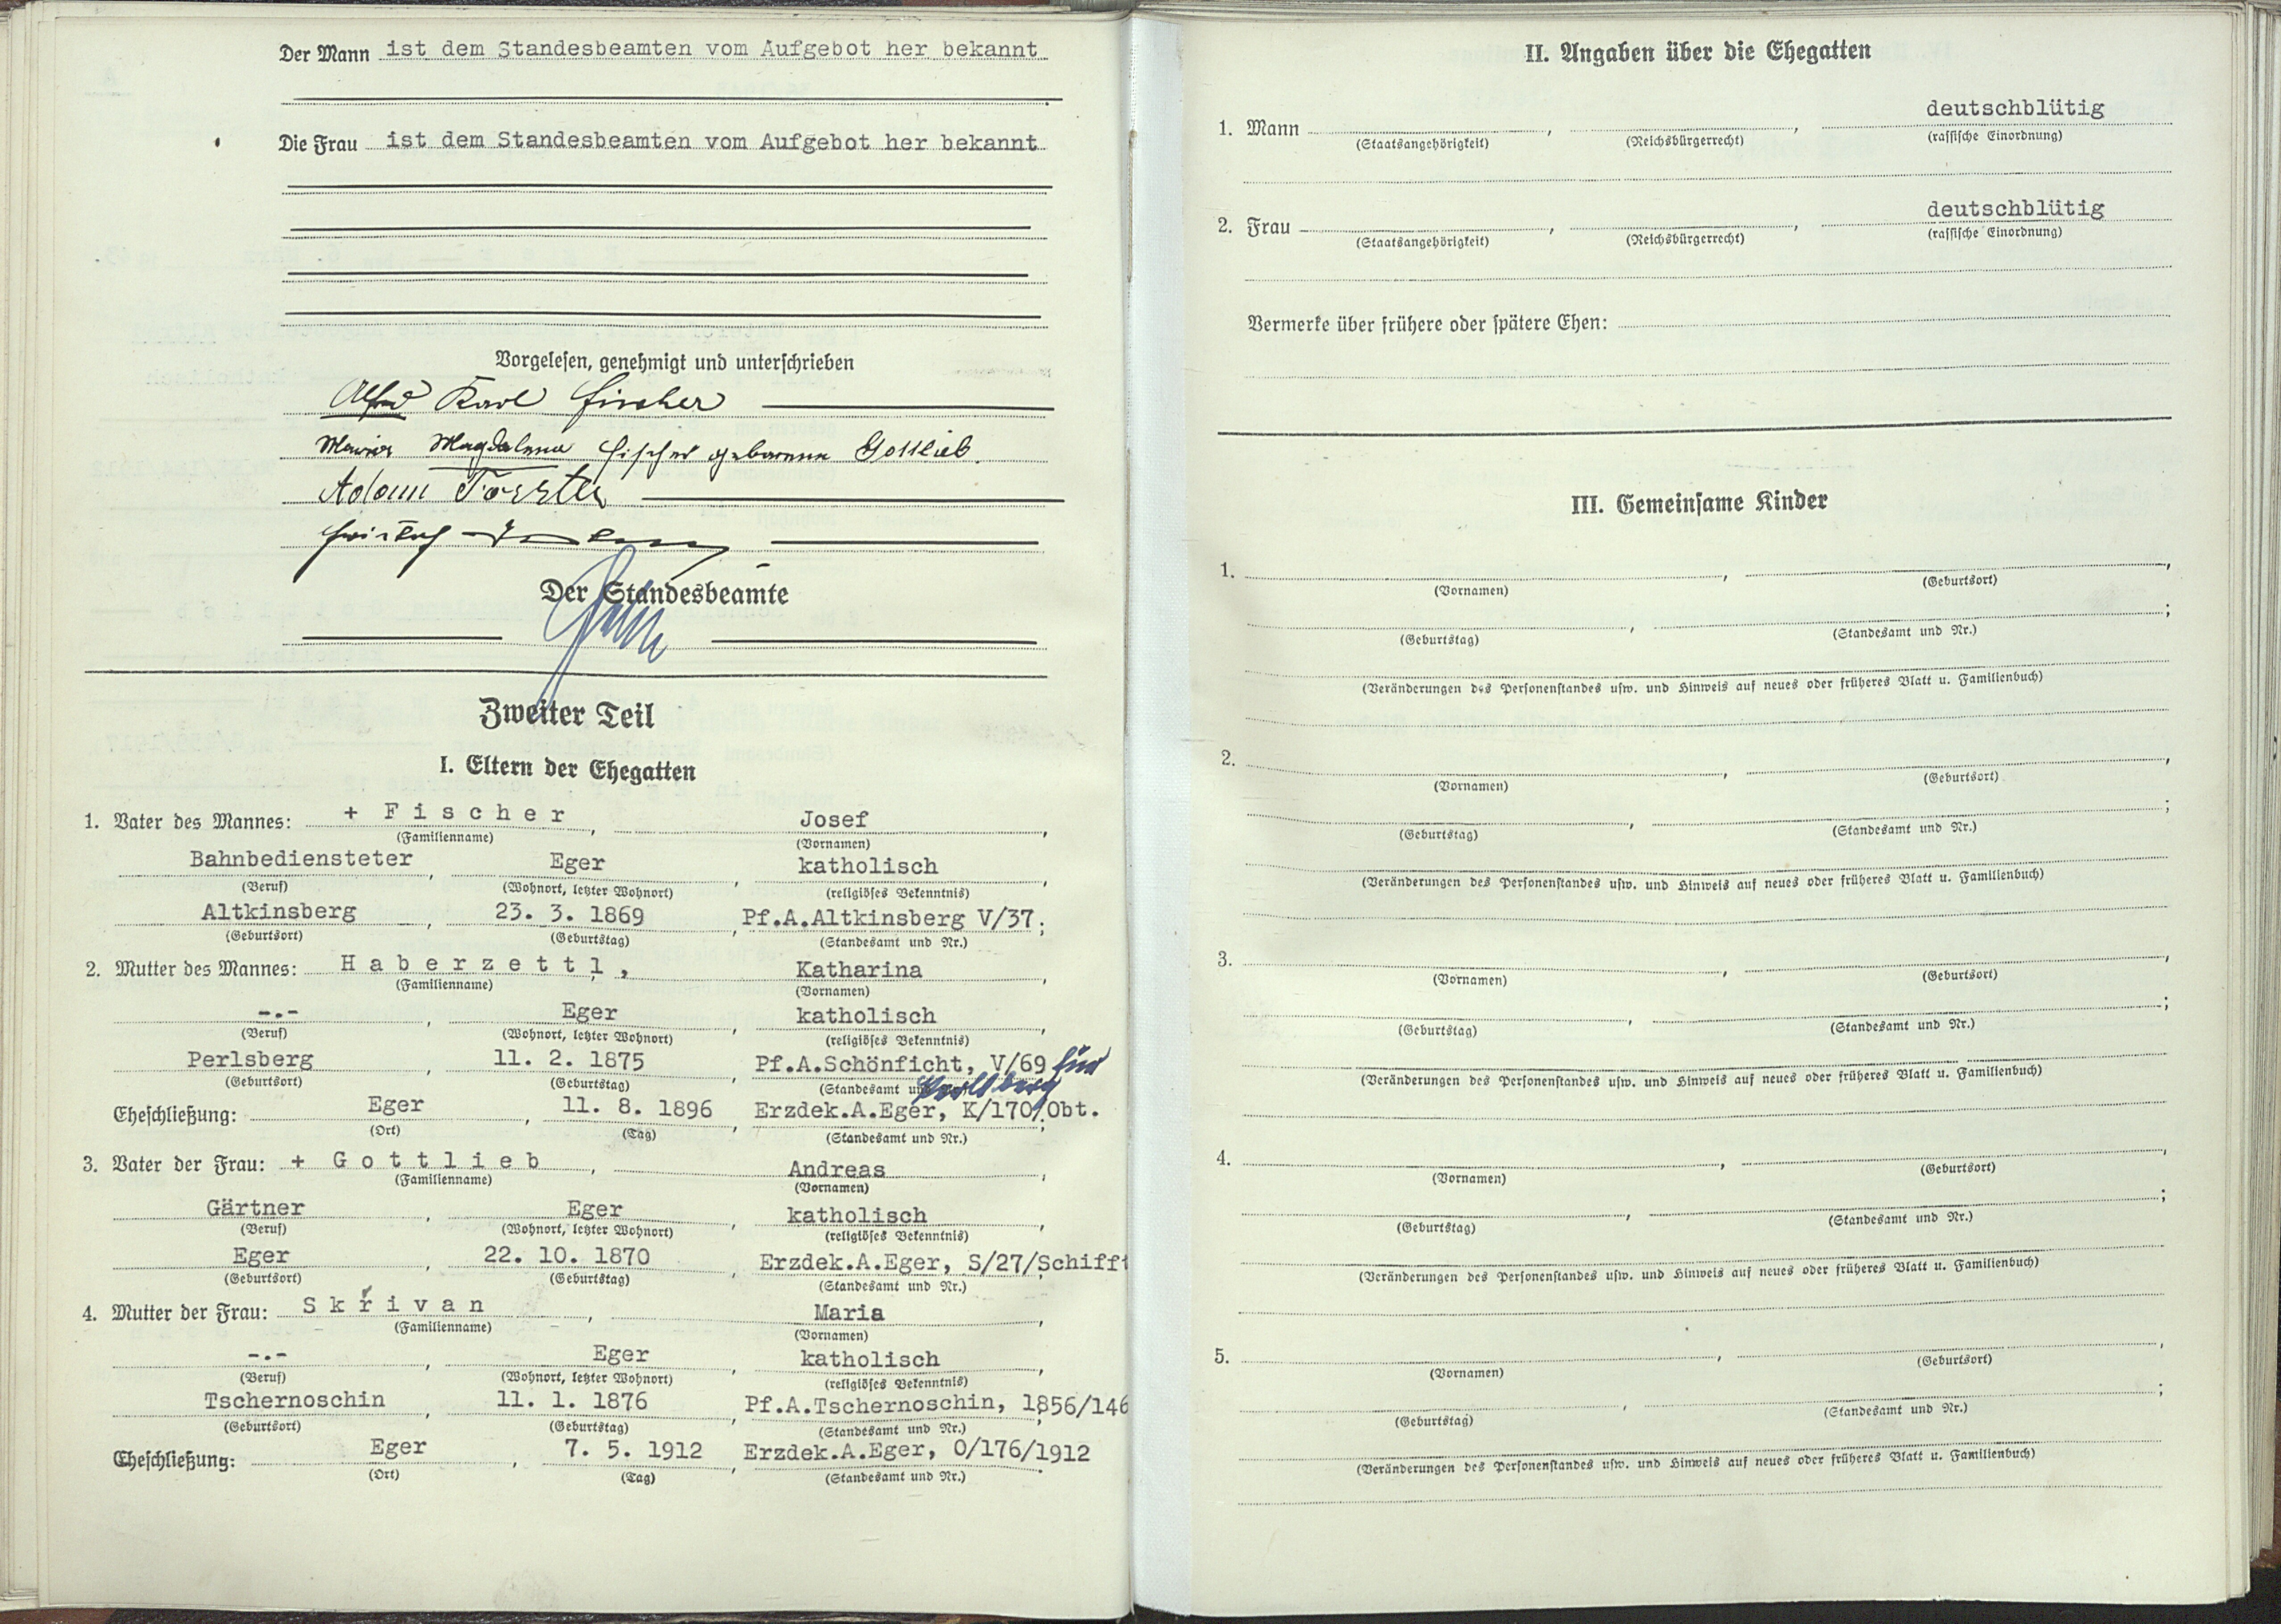 Der Mann ist dem Standesbeamten vom Aufgebot her bekannt
Die Frau ist dem Standesbeamten vom Aufgebot her bekannt
Vorgelesen, genehmigt und unterschrieben
Alfred Karl Fischer
Maria Magdalena Fischer geborene Gottlieb.
Adam
Der Standesbeamte
Zweiter Teil
I. Eltern der Ehegatten
1. Vater des Mannes: + Fischer, Josef,
(Familienname) (Vornamen)
Bahnbediensteter, Eger, katholisch,
(Beruf) (Wohnort, letzter Wohnort) (religiöses Bekenntnis)
Altkinsberg, 23. 3. 1869, Pf.A.Altkinsberg V/37;
(Geburtsort) (Geburtstag) (Standesamt und Nr.)
2. Mutter des Mannes: Haberzettl, Katharina,
(Familienname) (Vornamen)
-.-, Eger, katholisch,
(Beruf) (Wohnort, letzter Wohnort) (religiöses Bekenntnis)
Perlsberg, 11. 2. 1875, Pf.A.Schönficht, V/69 für
(Geburtsort) (Geburtstag) (Standesamt und Perlsberg
Eheschließung: Eger, 11. 8. 1896, Erzdek.A.Eger, K/170/Obt.
(Ort) (Tag) (Standesamt und Nr.)
3. Vater der Frau: + Gottlieb, Andreas,
(Familienname) (Vornamen)
Gärtner, Eger, katholisch,
(Beruf) (Wohnort, letzter Wohnort) (religiöses Bekenntnis)
Eger, 22. 10. 1870, Erzdek.A.Eger, S/27/Schifft
(Geburtsort) (Geburtstag) (Standesamt und Nr.)
4. Mutter der Frau: Skřivan, Maria,
(Familienname) (Vornamen)
-.-, Eger, katholisch,
(Beruf) (Wohnort, letzter Wohnort) (religiöses Bekenntnis)
Tschernoschin, 11. 1. 1876, Pf.A.Tschernoschin, 1856/146
(Geburtsort) (Geburtstag) (Standesamt und Nr.)
Eheschließung: Eger, 7. 5. 1912, Erzdek.A.Eger, O/176/1912
(Ort) (Tag) (Standesamt und Nr.)
II. Angaben über die Ehegatten
1. Mann , , deutschblütig
(Staatsangehörigkeit) (Reichsbürgerrecht) (rassische Einordnung)
2. Frau , , deutschblütig
(Staatsangehörigkeit) (Reichsbürgerrecht) (rassische Einordnung)
Vermerke über frühere oder spätere Ehen:
III. Gemeinsame Kinder
1. , ,
(Vornamen) (Geburtsort)
, ;
(Geburtstag) (Standesamt und Nr.)
(Veränderungen des Personenstandes usw. und Hinweis auf neues oder früheres Blatt u. Familienbuch)
2. , ,
(Vornamen) (Geburtsort)
, ;
(Geburtstag) (Standesamt und Nr.)
(Veränderungen des Personenstandes usw. und Hinweis auf neues oder früheres Blatt u. Familienbuch)
3. , ,
(Vornamen) (Geburtsort)
, ;
(Geburtstag) (Standesamt und Nr.)
(Veränderungen des Personenstandes usw. und Hinweis auf neues oder früheres Blatt u. Familienbuch)
4. , ,
(Vornamen) (Geburtsort)
, ;
(Geburtstag) (Standesamt und Nr.)
(Veränderungen des Personenstandes usw. und Hinweis auf neues oder früheres Blatt u. Familienbuch)
5. , ,
(Vornamen) (Geburtsort)
, ;
(Geburtstag) (Standesamt und Nr.)
(Veränderungen des Personenstandes usw. und Hinweis auf neues oder früheres Blatt u. Familienbuch)